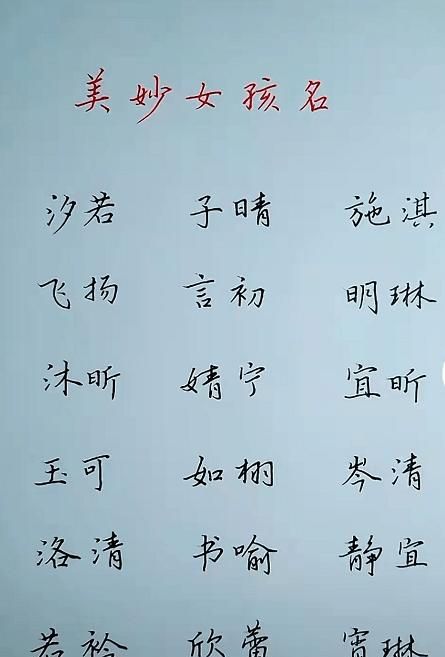 美妙女孩名
汐若 子晴 施淇
飞扬 言初 明琳
沐昕 婧宁 宜昕
玉可 如栩 岑清
洛清 书喻 静宜
若衿 欣蕾 琳